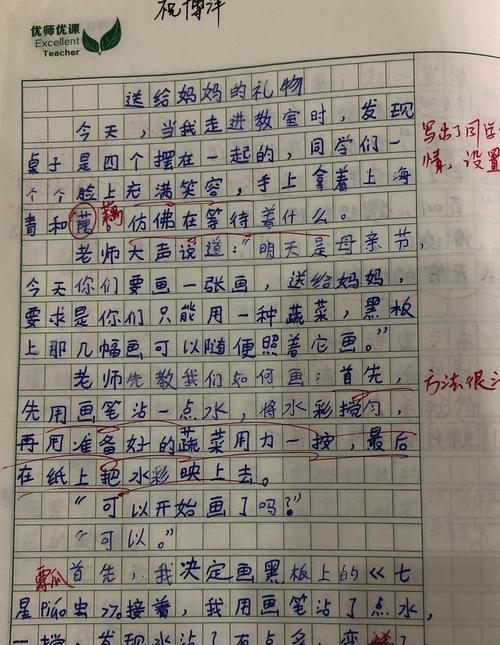 优师优课
Excellent
Teacher
祝博洋
送给妈妈的礼物
今天，当我走进教室时，发现
写出了同学
桌子是四个摆在一起的，同学们一
情，设置
个个脸上充满笑容，手上拿着上海
藕
青和藕。仿佛在等待着什么。
老师大声说道：“明天是母亲节，
今天你们要画一张画，送给妈妈，
要求是你们只能用一种蔬菜，黑板
上那几幅画可以随便照着它画。”
老师先教我们如何画：首先，
方法很
先用画笔沾一点水，将水彩搅匀，
再用准备好的蔬菜用力一按，最后
在纸上把水彩映上去。
“可以开始画了吗？”
“可以。”
瓢
首先，我决定画黑板上的《七
星piáo虫》。接着，我用画笔沾了点水，
一搅，发现水沾了有点多，变